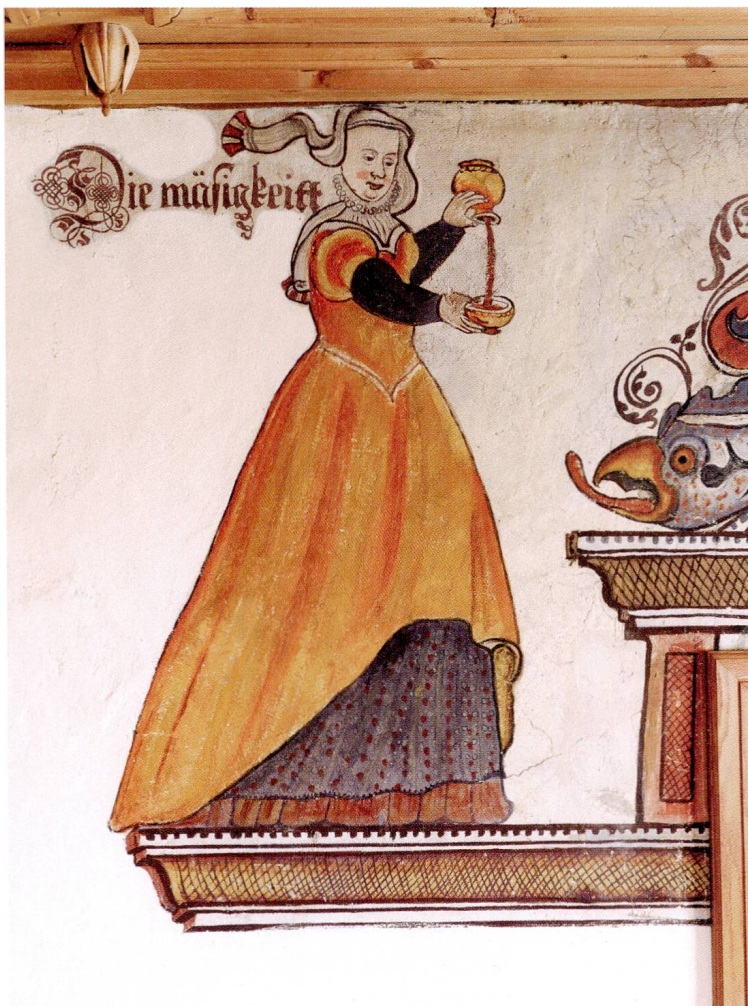 Die mäsigkeitt